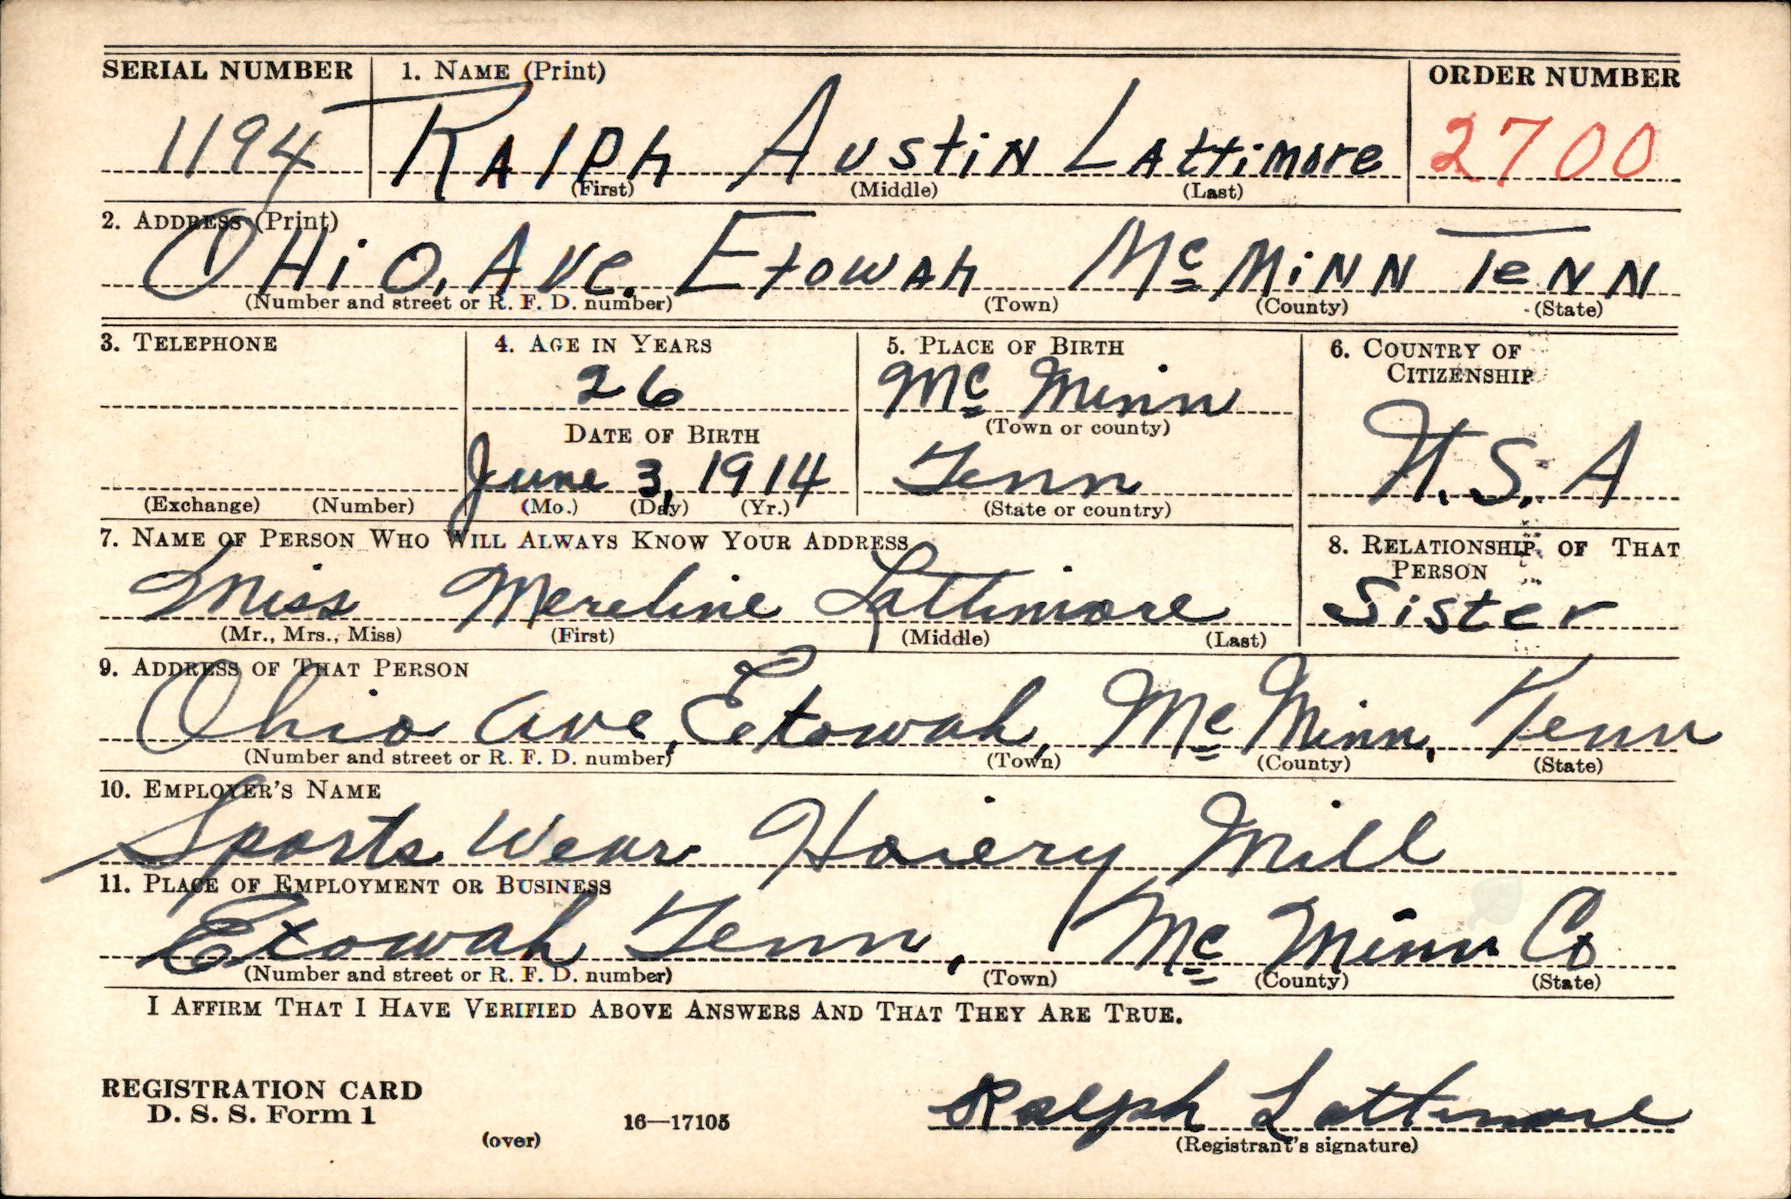 SERIAL NUMBER 1. NAME (Print) ORDER NUMBER
1194 RAlPh AUStiN LAttimore 2700
(First) (Middle) (Last)
2. ADDRESS (Print)
OHiO, AVe. EtowAh Mc MiNN TeNN
(Number and street or R. F. D. number) (Town) (County) (State)
3. TELEPHONE 4. AGE IN YEARS 5. PLACE OF BIRTH 6. COUNTRY OF CITIZENSHIP
26 Mc Minn
DATE OF BIRTH (Town or county)
June 3, 1914 Tenn U.S.A
(Exchange) (Number) (Mo.) (Day) (Yr.) (State or country)
7. NAME OF PERSON WHO WILL ALWAYS KNOW YOUR ADDRESS 8. RELATIONSHIP OF THAT PERSON
Miss Mereline Lattimore Sister
(Mr., Mrs., Miss) (First) (Middle) (Last)
9. ADDRESS OF THAT PERSON
Ohio Ave, Etowah, Mc Minn, Tenn
(Number and street or R. F. D. number) (Town) (County) (State)
10. EMPLOYER'S NAME
Sports Wear Hosiery Mill
11. PLACE OF EMPLOYMENT OR BUSINESS
Etowah Tenn, Mc Minn Co
(Number and street or R. F. D. number) (Town) (County) (State)
I AFFIRM THAT I HAVE VERIFIED ABOVE ANSWERS AND THAT THEY ARE TRUE.
REGISTRATION CARD
D. S. S. Form 1 16—17105 Ralph Lattimore
(over) (Registrant's signature)